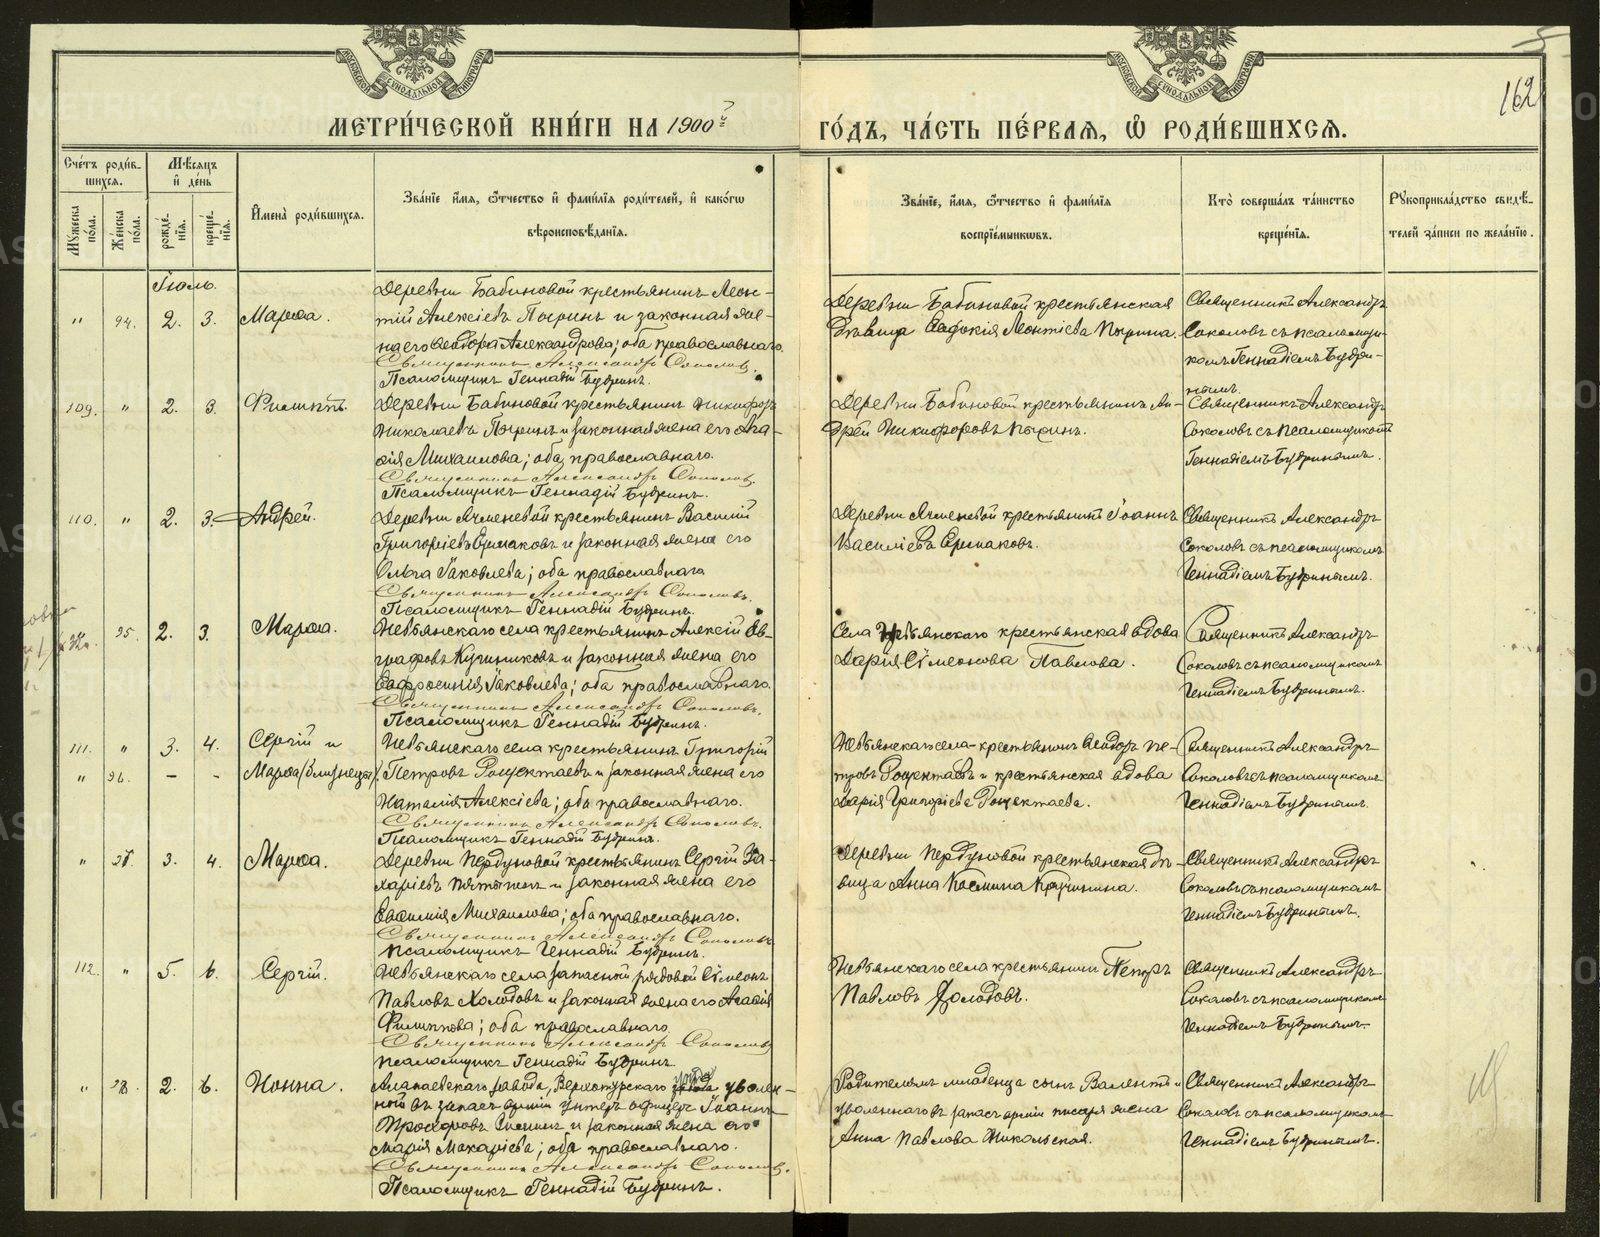 МОСКОВСКОЙ СѴНОДАЛЬНОЙ ТИПОГРАФІИ
МОСКОВСКОЙ СѴНОДАЛЬНОЙ ТИПОГРАФІИ
162
МЕТРИ́ЧЕСКОЙ КНИ́ГИ НА 1900й
ГО́ДЪ, ЧА́СТЬ ПЕ́РВАЯ, Ѽ РОДИ́ВШИХСЯ.
Сче́тъ роди́в-
шихся.
Мѣ́сяцъ
и де́нь
Му́жеска по́ла.
Же́нска по́ла.
рожде́-
нїя.
креще́-
нїя.
Имена̀ роди́вшихся.
Зва́нїе имя, ѻтчество и фами́лїя роди́телей, и како́гѡ
вѣроисповѣ́данїя.
Зва́нїе, имя, ѻтчество и фами́лїя
воспрїе́мникѡвъ.
Кто̀ соверша́лъ та́инство
креще́нїя.
Рꙋкоприкла́дство свидѣ́-
телей за́писи по жела́нїю.
Іюль.
" 94. 2. 3. Марѳа.
Деревни Бабиновой крестьянинъ Леон-
тій Алексіевъ Пыринъ и законная же-
на его Ѳеодора Александрова; оба православнаго.
Священникъ Александръ Соколовъ.
Псаломщикъ Геннадій Будринъ.
Деревни Бабиновой крестьянская
дѣвица Евдокія Леонтіева Пырина.
Священникъ Александръ
Соколовъ съ псаломщи-
комъ Геннадіемъ Будри-
нымъ.
109. " 2. 3. Филиппъ.
Деревни Бабиновой крестьянинъ Никифоръ
Николаевъ Пыринъ и законная жена его Ага-
ѳія Михаилова; оба православнаго.
Священникъ Александръ Соколовъ.
Псаломщикъ Геннадій Будринъ.
Деревни Бабиновой крестьянинъ Ан-
дрей Никифоровъ Пыринъ.
Священникъ Александръ
Соколовъ съ псаломщикомъ
Геннадіемъ Будринымъ.
110. " 2. 3. Андрей.
Деревни Ячменевой крестьянинъ Василій
Григоріевъ Ермаковъ и законная жена его
Ольга Іаковлева; оба православнаго
Священникъ Александръ Соколовъ.
Псаломщикъ Геннадій Будринъ.
Деревни Ячменевой крестьянинъ Іоаннъ
Василіевъ Ермаковъ.
Священникъ Александръ
Соколовъ съ псаломщикомъ
Геннадіемъ Будринымъ.
95. 2. 3. Марѳа.
Невьянскаго села крестьянинъ Алексій Ев-
графовъ Кучниковъ и законная жена его
Евфросинія Іаковлева; оба православнаго.
Священникъ Александръ Соколовъ.
Псаломщикъ Геннадій Будринъ.
Села Невьянскаго крестьянская вдова
Дарія Сѵмеонова Павлова.
Священникъ Александръ
Соколовъ съ псаломщикомъ
Геннадіемъ Будринымъ.
111. " 3. 4. Сергій и
" 96. - - Марѳа (близнецы)
Невьянскаго села крестьянинъ Григорій
Петровъ Рощектаевъ и законная жена его
Наталія Алексіева; оба православнаго.
Священникъ Александръ Соколовъ.
Псаломщикъ Геннадій Будринъ.
Невьянскаго села крестьянинъ Ѳеодоръ Пе-
тровъ Рощектаевъ и крестьянская вдова
Дарія Григоріева Рощектаева.
Священникъ Александръ
Соколовъ съ псаломщикомъ
Геннадіемъ Будринымъ.
" 97. 3. 4. Марѳа.
Деревни Пердуновой крестьянинъ Сергій За-
харіевъ Пятыгинъ и законная жена его
Евѳимія Михаилова; оба православнаго.
Священникъ Александръ Соколовъ
Псаломщикъ Геннадій Будринъ.
Деревни Пердуновой крестьянская дѣ-
вица Анна Космина Кручинина.
Священникъ Александръ
Соколовъ съ псаломщикомъ
Геннадіемъ Будринымъ.
112. " 5. 6. Сергій.
Невьянскаго села запасной рядовой Сѵмеонъ
Павловъ Холодовъ и законная жена его Агаѳія
Филиппова; оба православнаго
Священникъ Александръ Соколовъ
Псаломщикъ Геннадій Будринъ.
Невьянскаго села крестьянинъ Петръ
Павловъ Холодовъ.
Священникъ Александръ
Соколовъ съ псаломщикомъ
Геннадіемъ Будринымъ.
" 98. 2. 6. Нонна.
Алапаевскаго завода, Верхотурскаго уѣзда уволен-
ной въ запасъ арміи унтеръ офицеръ Іоаннъ
Прохоровъ и законная жена его
Марія Макаріева; оба православнаго.
Священникъ Александръ Соколовъ.
Псаломщикъ Геннадій Будринъ.
Родителямъ младенца сынъ Валентинъ
уволеннаго въ запасъ арміи писаря жена
Анна Павлова Никольская.
Священникъ Александръ
Соколовъ съ псаломщикомъ
Геннадіемъ Будринымъ.